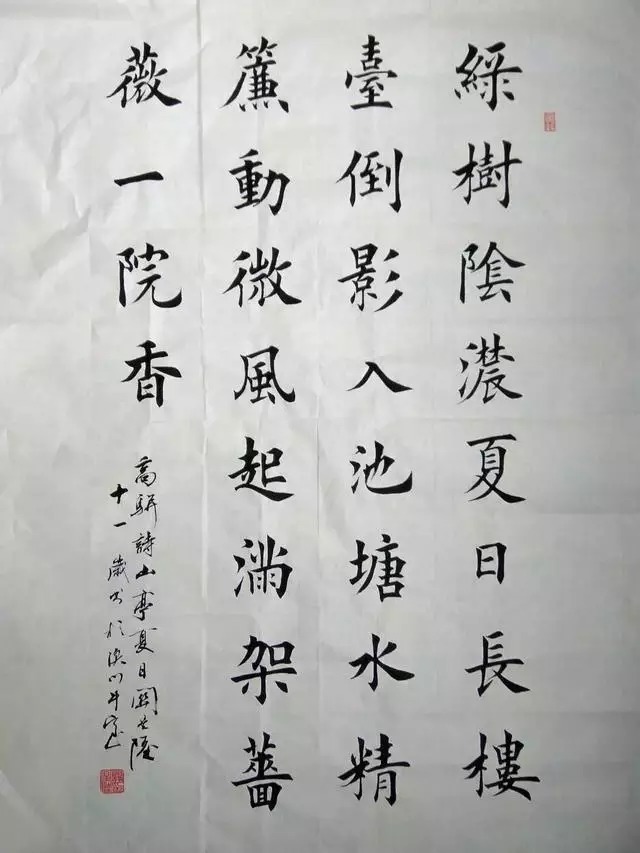 綠樹陰濃夏日長樓
臺倒影入池塘水精
簾動微風起滿架薔
薇一院香
高駢詩山亭夏日
十一歲書於